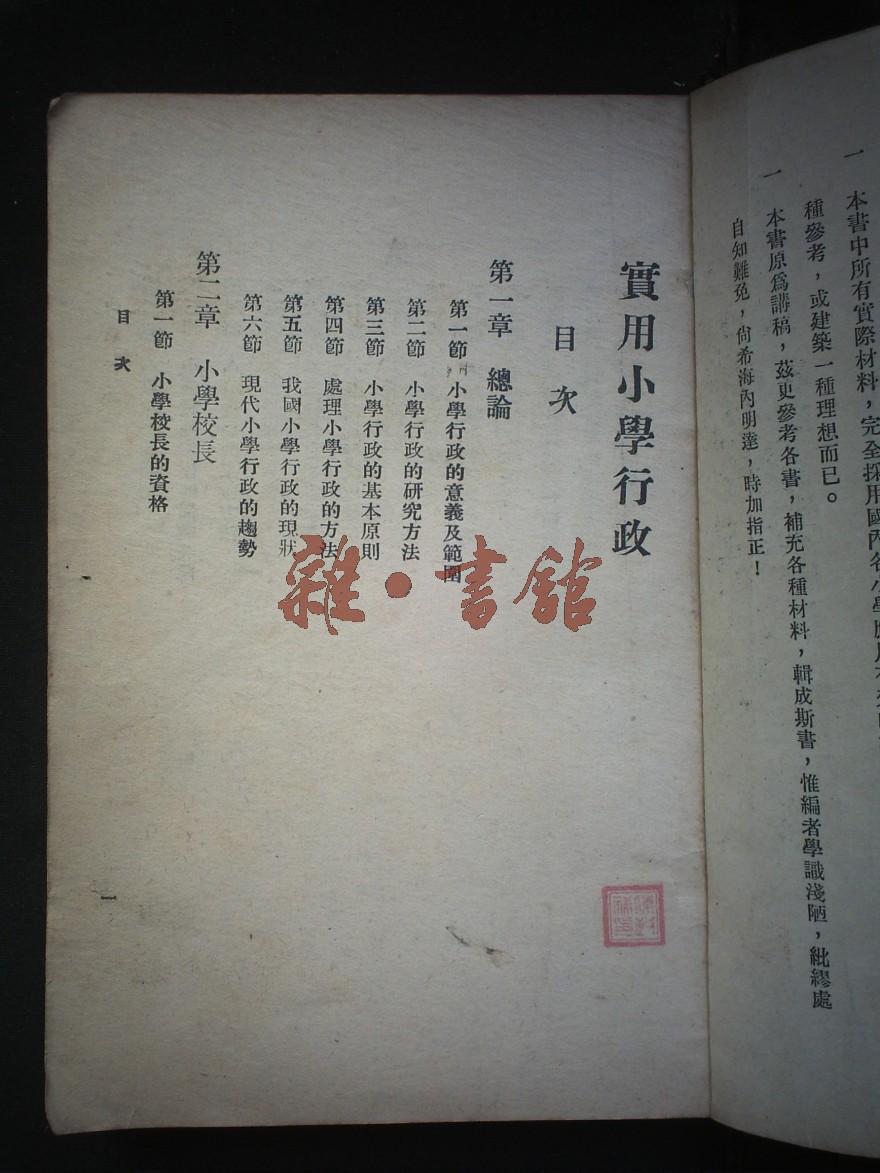 一　本書中所有實際材料，完全採用國內各小學
種參考，或建築一種理想而已。
一　本書原爲講稿，茲更參考各書，補充各種材料，輯成斯書，惟編者學識淺陋，紕繆處
自知難免，尙希海內明達，時加指正！
實用小學行政
目次
第一章　總論
第一節　小學行政的意義及範圍
第二節　小學行政的研究方法
第三節　小學行政的基本原則
第四節　處理小學行政的方法
第五節　我國小學行政的現狀
第六節　現代小學行政的趨勢
第二章　小學校長
第一節　小學校長的資格
目次
一
雜·書館